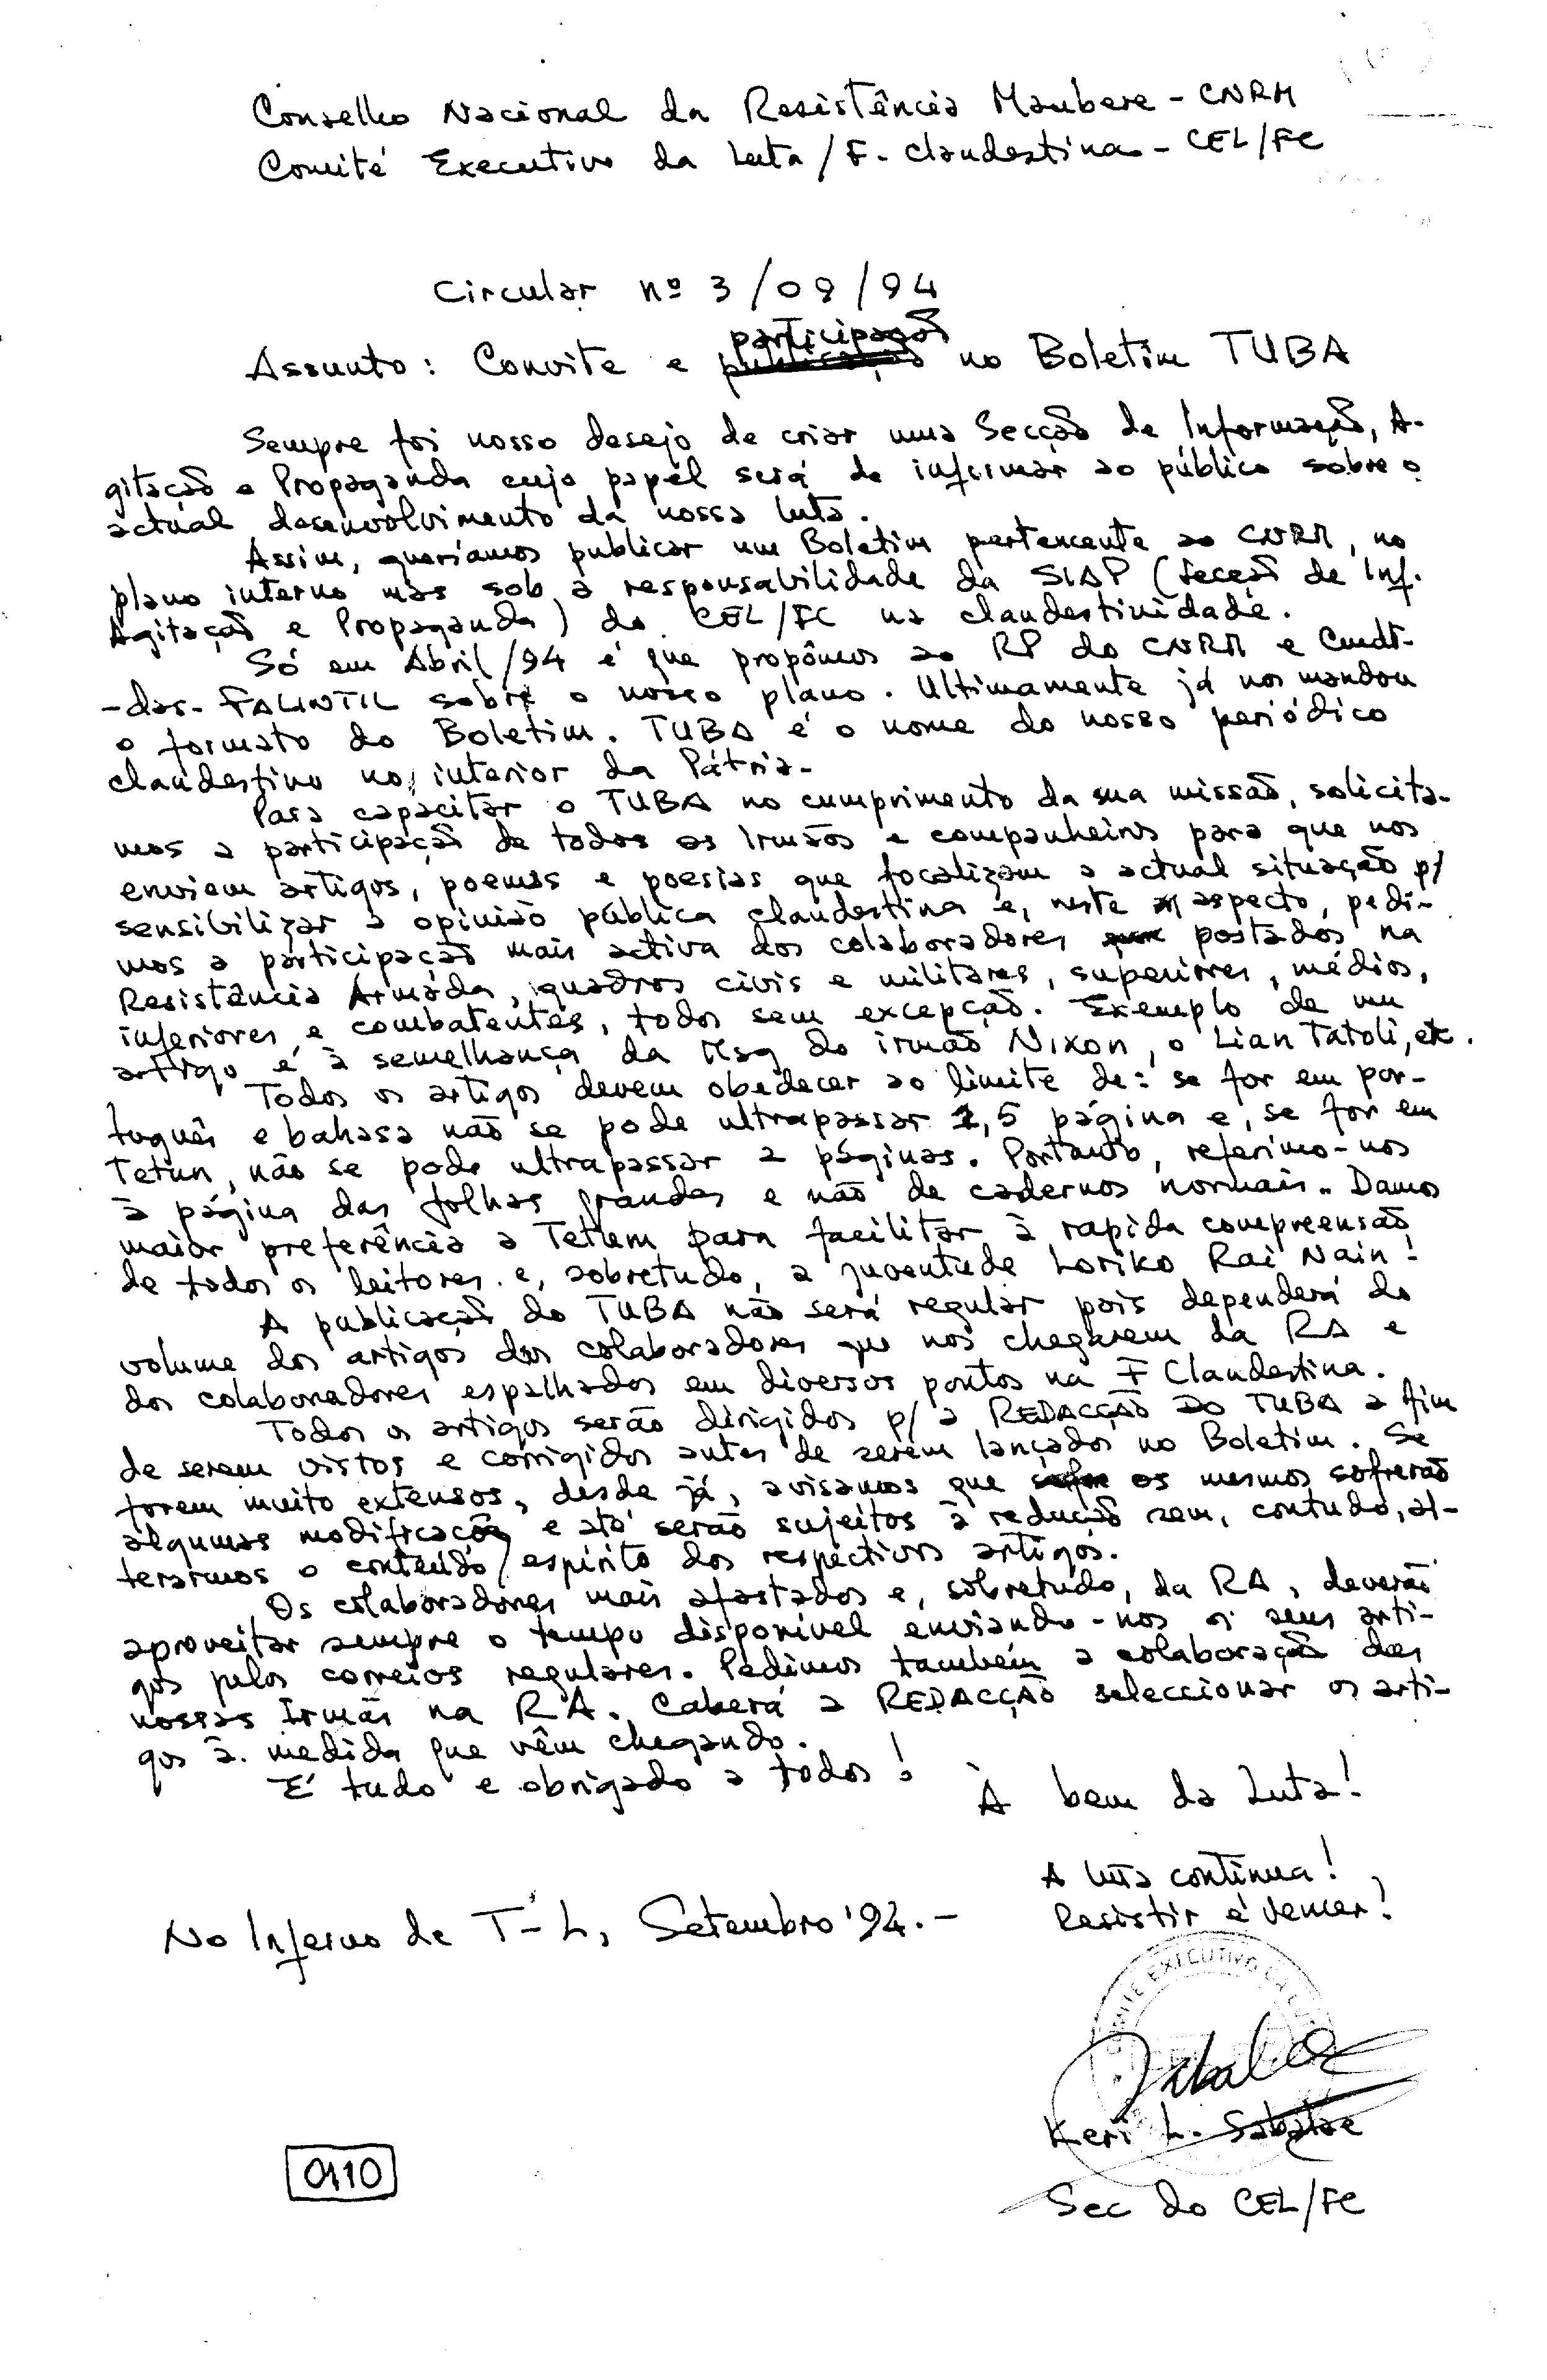 Conselho Nacional da Resistência Maubere - CNRM
Comité Executivo da Luta / F. Clandestina - CEL/FC
Circular nº 3/09/94
participação
Assunto: Convite e publicação no Boletim TUBA
Sempre foi nosso desejo de criar uma Secção de Informação, A-
gitação e Propaganda cujo papel será de informar ao público sobre o
actual desenvolvimento da nossa luta.
Assim, queríamos publicar um Boletim pertencente ao CNRM, no
plano interno mas sob a responsabilidade da SIAP (Secção de Inf.
Agitação e Propaganda) do CEL/FC na clandestinidade.
Só em Abril/94 é que propômos ao RP do CNRM e Cmdt-
-das- FALINTIL sobre o nosso plano. Ultimamente já nos mandou
o formato do Boletim. TUBA é o nome do nosso periódico
clandestino no interior da Pátria.
Para capacitar o TUBA no cumprimento da sua missão, solicita-
mos a participação de todos os Irmãos e companheiros para que nos
enviem artigos, poemas e poesias que focalizam a actual situação p/
sensibilizar a opinião pública clandestina e, neste aspecto, pedi-
mos a participação mais activa dos colaboradores postados na
Resistência Armada, quadros civis e militares, superiores, médios,
inferiores e combatentes, todos sem excepção. Exemplo de um
artigo é à semelhança da Msg do irmão Nixon, o Lian Tatoli, etc.
Todos os artigos devem obedecer ao limite de: se for em por-
tuguês e bahasa não se pode ultrapassar 1,5 página e, se for em
Tetun, não se pode ultrapassar 2 páginas. Portanto, referimo-nos
à página das folhas grandes e não de cadernos normais. Damos
maior preferência a Tetum para facilitar à rapida compreensão
de todos os leitores e, sobretudo, a juventude Loriko Rai Nain!
A publicação do TUBA não será regular pois dependerá do
volume dos artigos dos colaboradores que nos chegarem da RA e
dos colaboradores espalhados em diversos pontos na F Clandestina.
Todos os artigos serão dirigidos p/ a REDACÇÃO DO TUBA a fim
de serem vistos e corrigidos antes de serem lançados no Boletim. Se
forem muito extensos, desde já, avisamos que os mesmos sofrerão
algumas modificações e até serão sujeitos à redução sem, contudo, al-
terarmos o conteúdo/espírito dos respectivos artigos.
Os colaboradores mais afastados e, sobretudo, da RA, deverão
aproveitar sempre o tempo disponível enviando-nos os seus arti-
gos pelos correios regulares. Pedimos também a colaboração das
nossas Irmãs na RA. Caberá a REDACÇÃO seleccionar os arti-
gos à medida que vêm chegando.
É tudo e obrigado a todos!
À bem da Luta!
A luta continua!
Resistir é Vencer!
No Inferno de T-L, Setembro '94.-
COMITÉ EXECUTIVO DA
Keri L. Sabalae
Sec do CEL/FC
0110